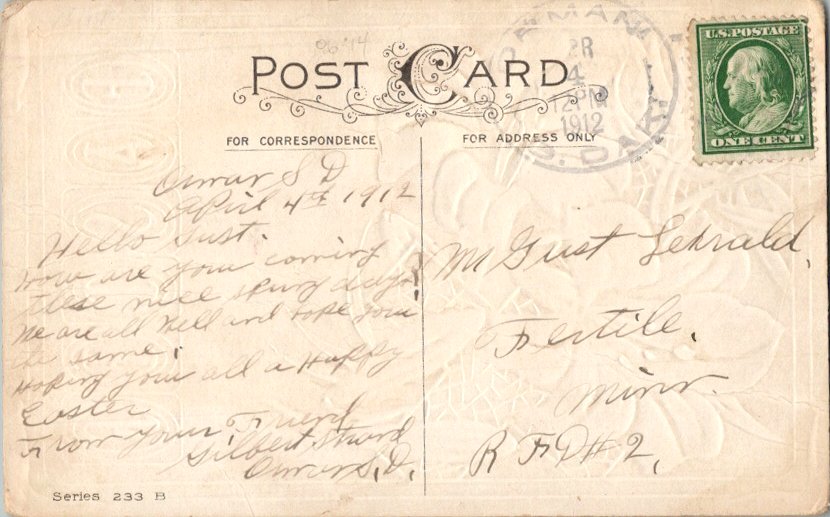 96 '14
POST CARD
FOR CORRESPONDENCE
FOR ADDRESS ONLY
U.S. POSTAGE
ONE CENT
MAN
4
12 PM
1912
S. DAK.
S D
April 4th 1912
Hello Gust.
How are you coming
these nice spring days
We are all Well and hope you
the same.
Hoping you all a Happy
Easter
From your Friend
Gilbert
S.D.
Mr Gust
Fertile.
Minn.
R F D # 2,
Series 233 B